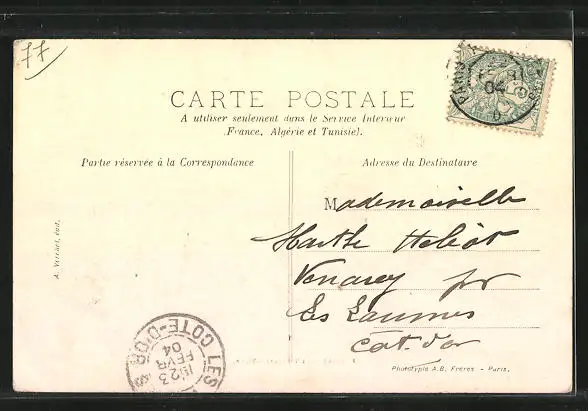 77
CARTE POSTALE
A utiliser seulement dans le Service Intérieur
(France, Algérie et Tunisie).
Partie réservée à la Correspondance
Adresse du Destinataire
Mademoiselle
Marthe
Venarey pr
Les Laumes
Côt. d'or
LES COTE-D'OR
23
FEVR
04
04
Phototypie A.B. Frères - Paris.